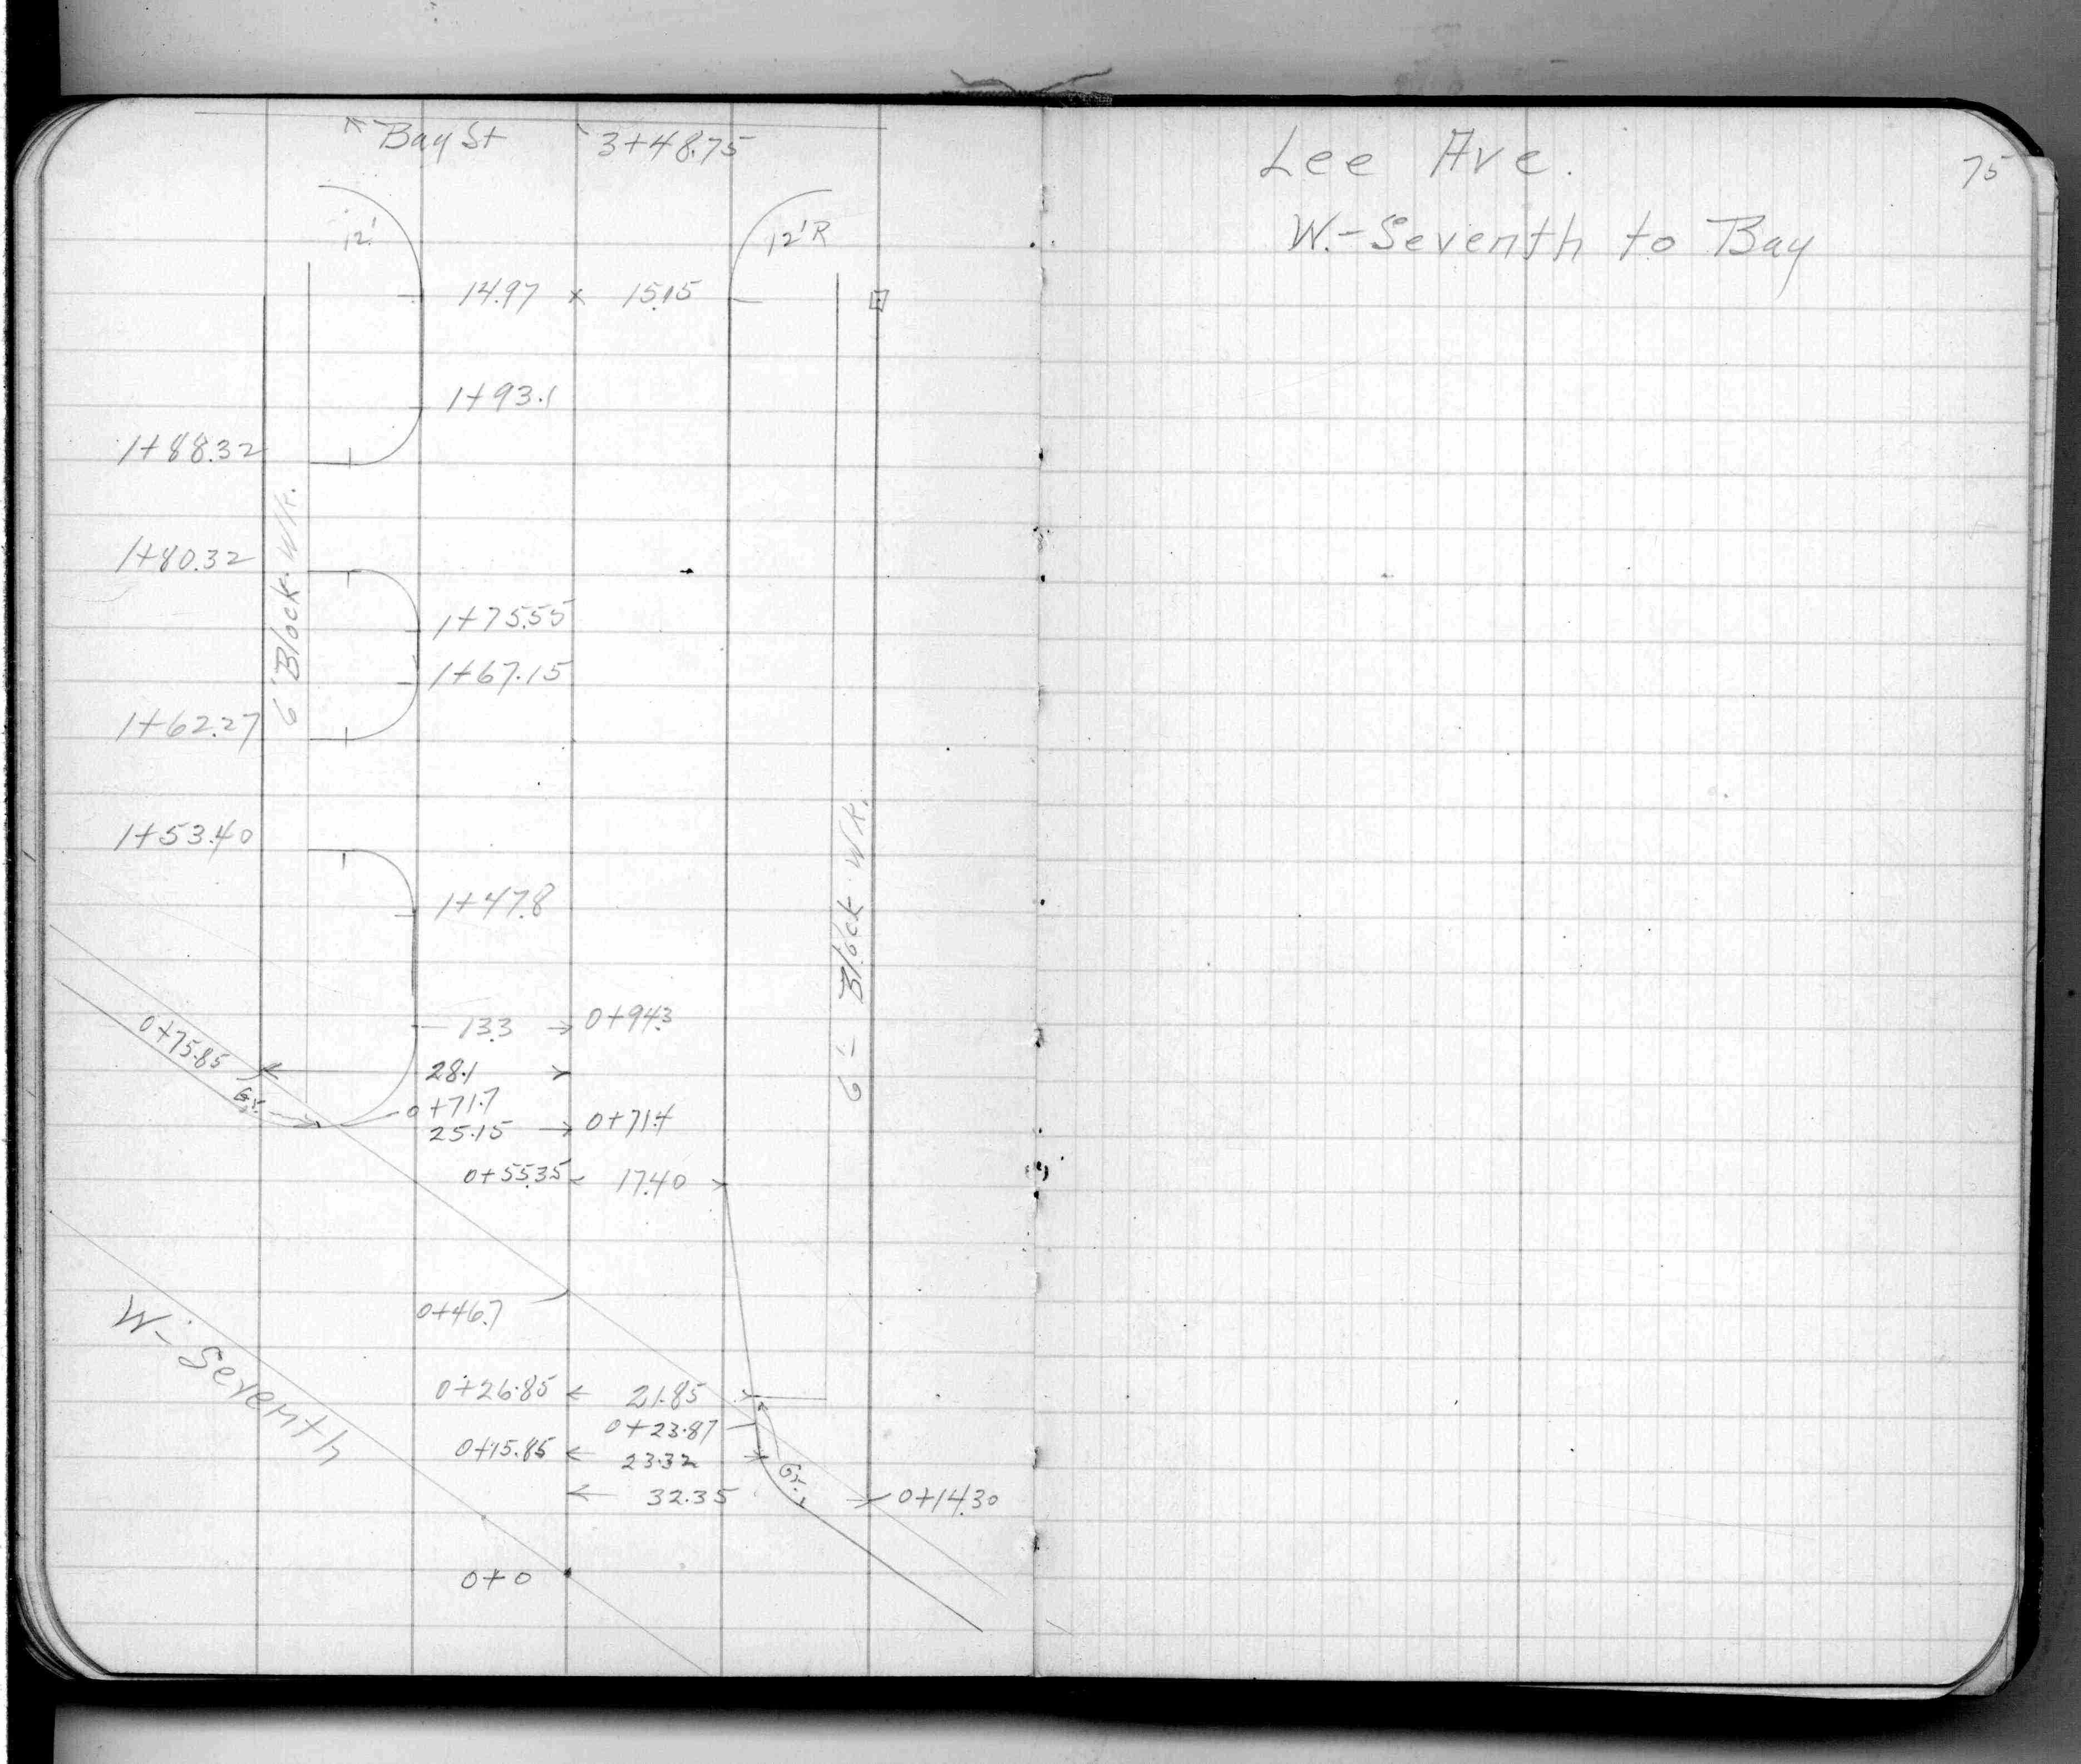 Bay St 3+48.75
12' 12'R
14.97 x 15.15
1+93.1
1+88.32
6' Block Wk.
1+80.32
1+75.55
1+67.15
1+62.27
1+53.40
1+47.8
6'- Block Wk.
13.3 0+94.3
0+75.85
28.1
Gr.
0+71.7
25.15 0+71.4
0+55.35 17.40
0+46.7
W- Seventh
0+26.85 21.85
0+23.87
0+15.85 23.32
Gr.
32.35 0+14.30
0+0
Lee Ave. 75
W.-Seventh to Bay